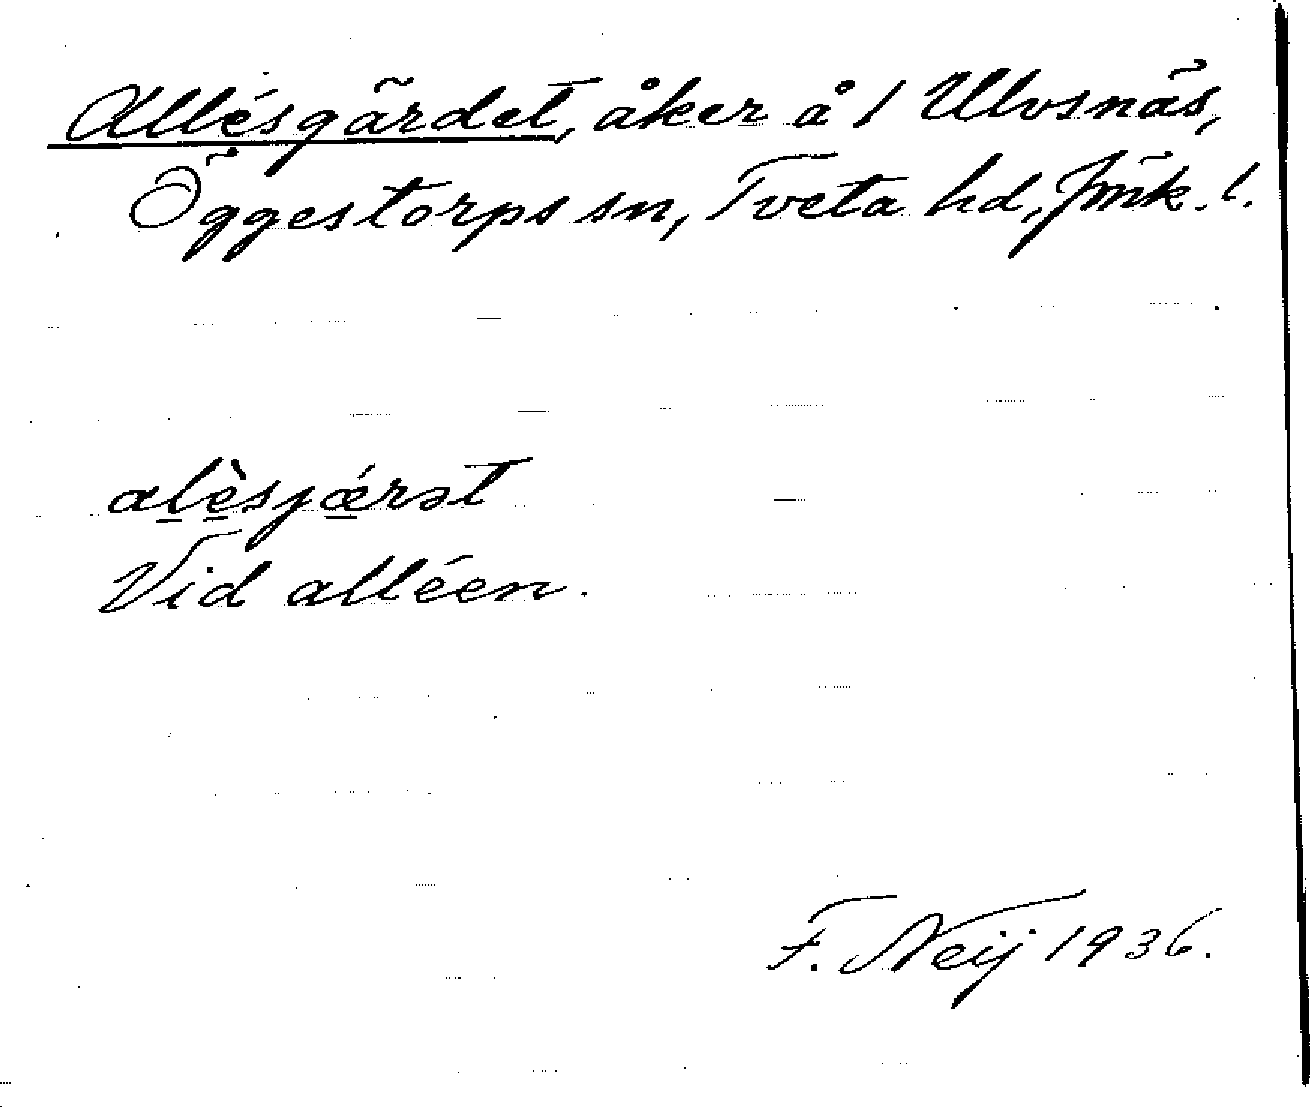 Allésgärdet, åker å 1 Ulvsnäs,
Öggestorps sn, Tveta hd, Jmk. l.
alèsjǽrət
Vid alléen.
F. Neij 1936.